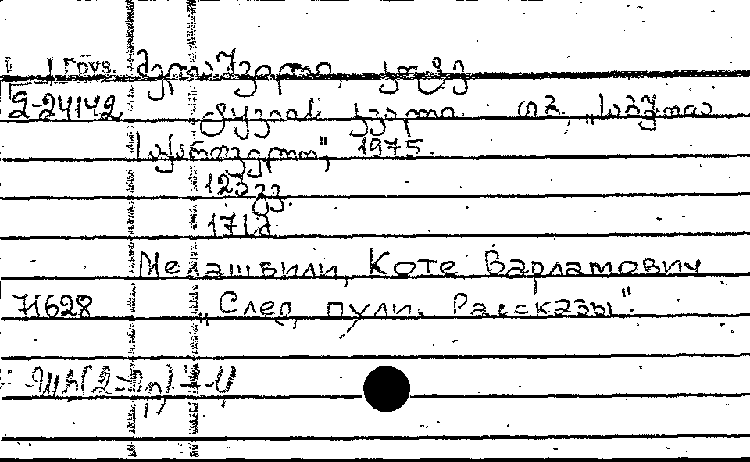 მელაშვილი, კოტე
2-24142 ტყვიის კვალი. თბ., „საბჭოთა
საქართველო", 1975.
123 გვ.
Мелашвили, Коте Варламович
71628 „След пули. Рассказы".